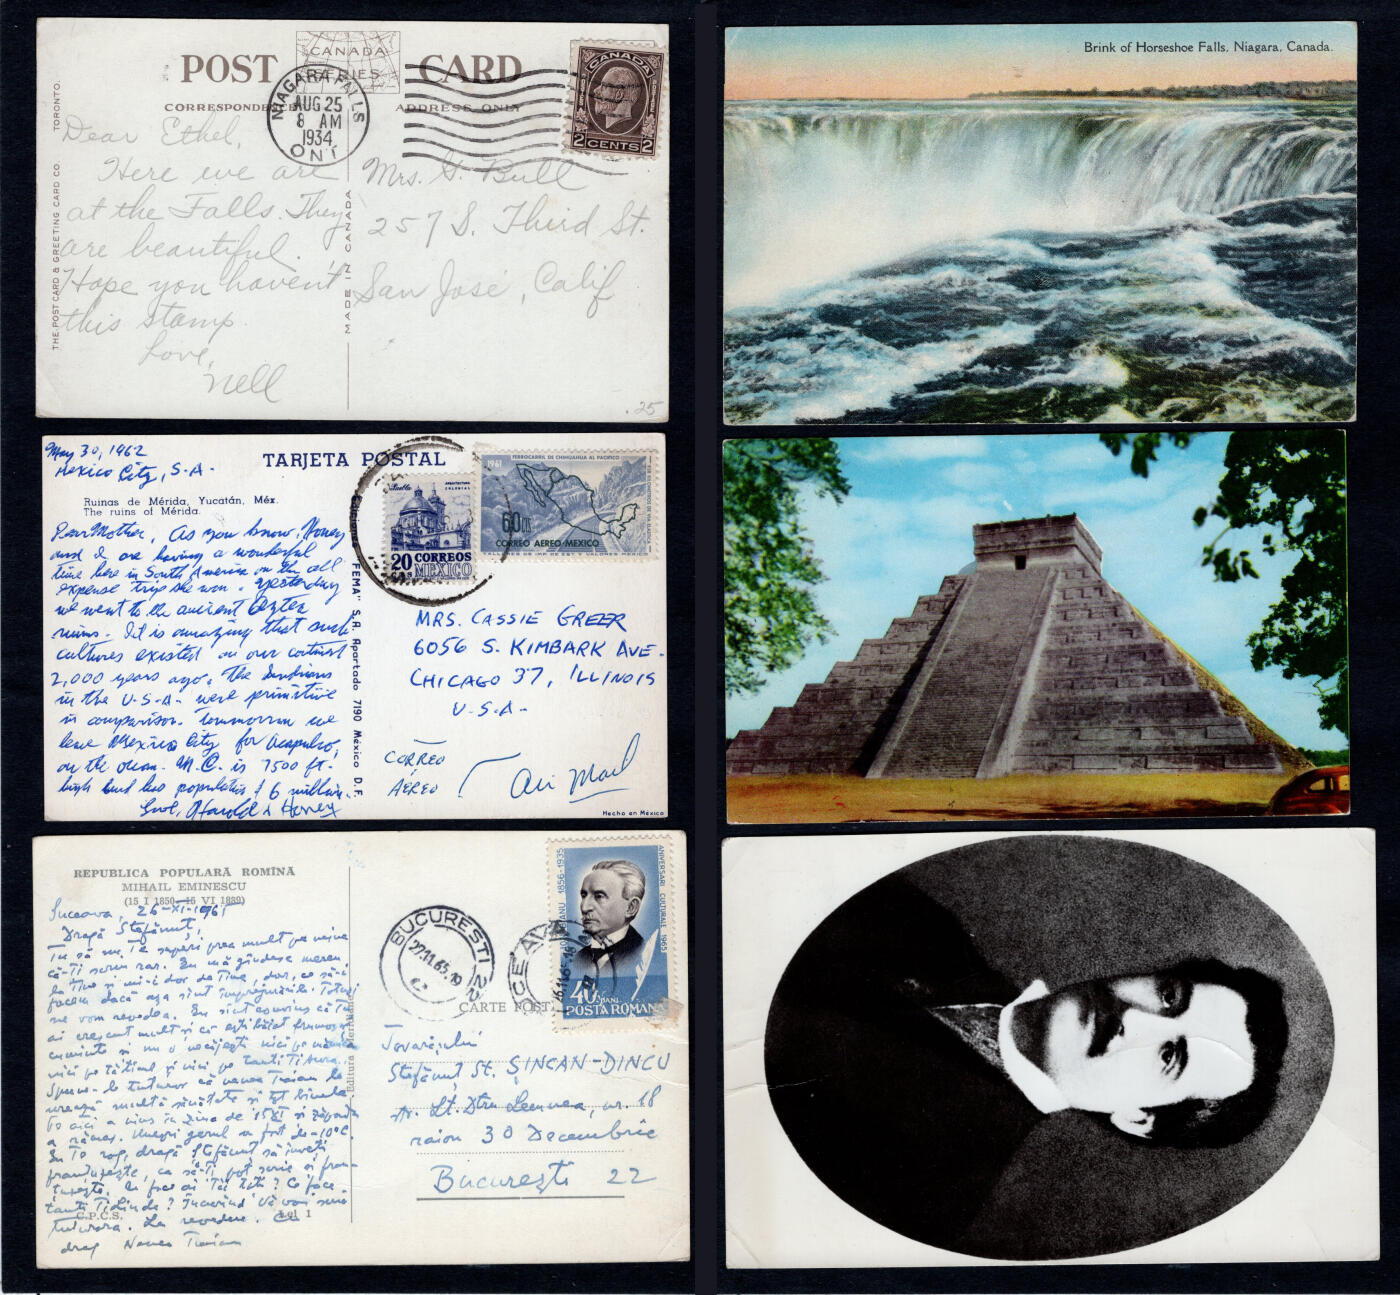 POST CARD
CANADA
CORRESPONDENCE
ADDRESS ONLY
NIAGARA FALLS
AUG 25
8 AM
1934
ONT
CANADA
2 CENTS 2
THE POST CARD & GREETING CARD CO. TORONTO.
MADE IN CANADA
Dear Ethel,
Here we are
at the Falls. They
are beautiful.
Hope you haven't
this stamp.
Love,
Nell
Mrs. G. Bull
257 S. Third St.
San José, Calif
.25
Brink of Horseshoe Falls, Niagara, Canada.
May 30, 1962
Mexico City, S.A.
TARJETA POSTAL
Ruinas de Mérida, Yucatán, Méx.
The ruins of Mérida.
Dear Mother, As you know, Honey
and I are having a wonderful
time here in South America on the all
expense trip she won. Yesterday
we went to the ancient Aztec
ruins. It is amazing that such
cultures existed on our continent
2,000 years ago. The Indians
in the U.S.A. were primitive
in comparison. Tommorrow we
leave Mexico City for Acapulco,
on the ocean. M.C. is 7500 ft.
high and has population of 6 million.
Love, Harold & Honey
FEMA" S.A. Apartado 7190 México D.F.
Puebla
ARQUITECTURA COLONIAL
20 CTS CORREOS
MEXICO
1961
FERROCARRIL DE CHIHUAHUA AL PACIFICO
60
CORREO AEREO-MEXICO
MRS. CASSIE GREER
6056 S. KIMBARK AVE.
CHICAGO 37, ILLINOIS
U.S.A.
CORREO
AEREO
Air Mail
Hecho en México
REPUBLICA POPULARĂ ROMÎNĂ
MIHAIL EMINESCU
(15 I 1850–15 VI 1889)
Suceava, 26-XI-1965
Dragă Ștefănuț,
Tu să nu te superi prea mult pe mine
că-ți scriu rar. Eu mă gîndesc mereu
la tine și mi-i dor de tine, dar, ce să-i
facem dacă așa sînt împrejurările. Totuși
ne vom revedea. Eu sînt convins că tu
ai crescut mult și că ești băiat frumos și
cuminte și nu o necăjești nici pe mămica
nici pe tăticul și nici pe tanti
Spune-le tuturor că nenea Traian le
urează multă sănătate și tot binele.
Eu te rog, dragă Ștefănuț să înveți
franțuzește, ca să-ți pot scrie și fran-
țuzește. Ce face
tanti
La revedere.
drag Nenea Traian
C.P.C.S.
Lei 1
BUCUREȘTI 22
27.11.65.19
SUCEAVA
1856-1935
ANIVERSARI CULTURALE 1965
40 BANI
POSTA ROMANA
CARTE POSTALĂ
Tovarășului
Ștefănuț St. ȘINCAN-DINCU
Str. Lt. Dtru Lemnea, nr. 18
raion 30 Decembrie
București 22